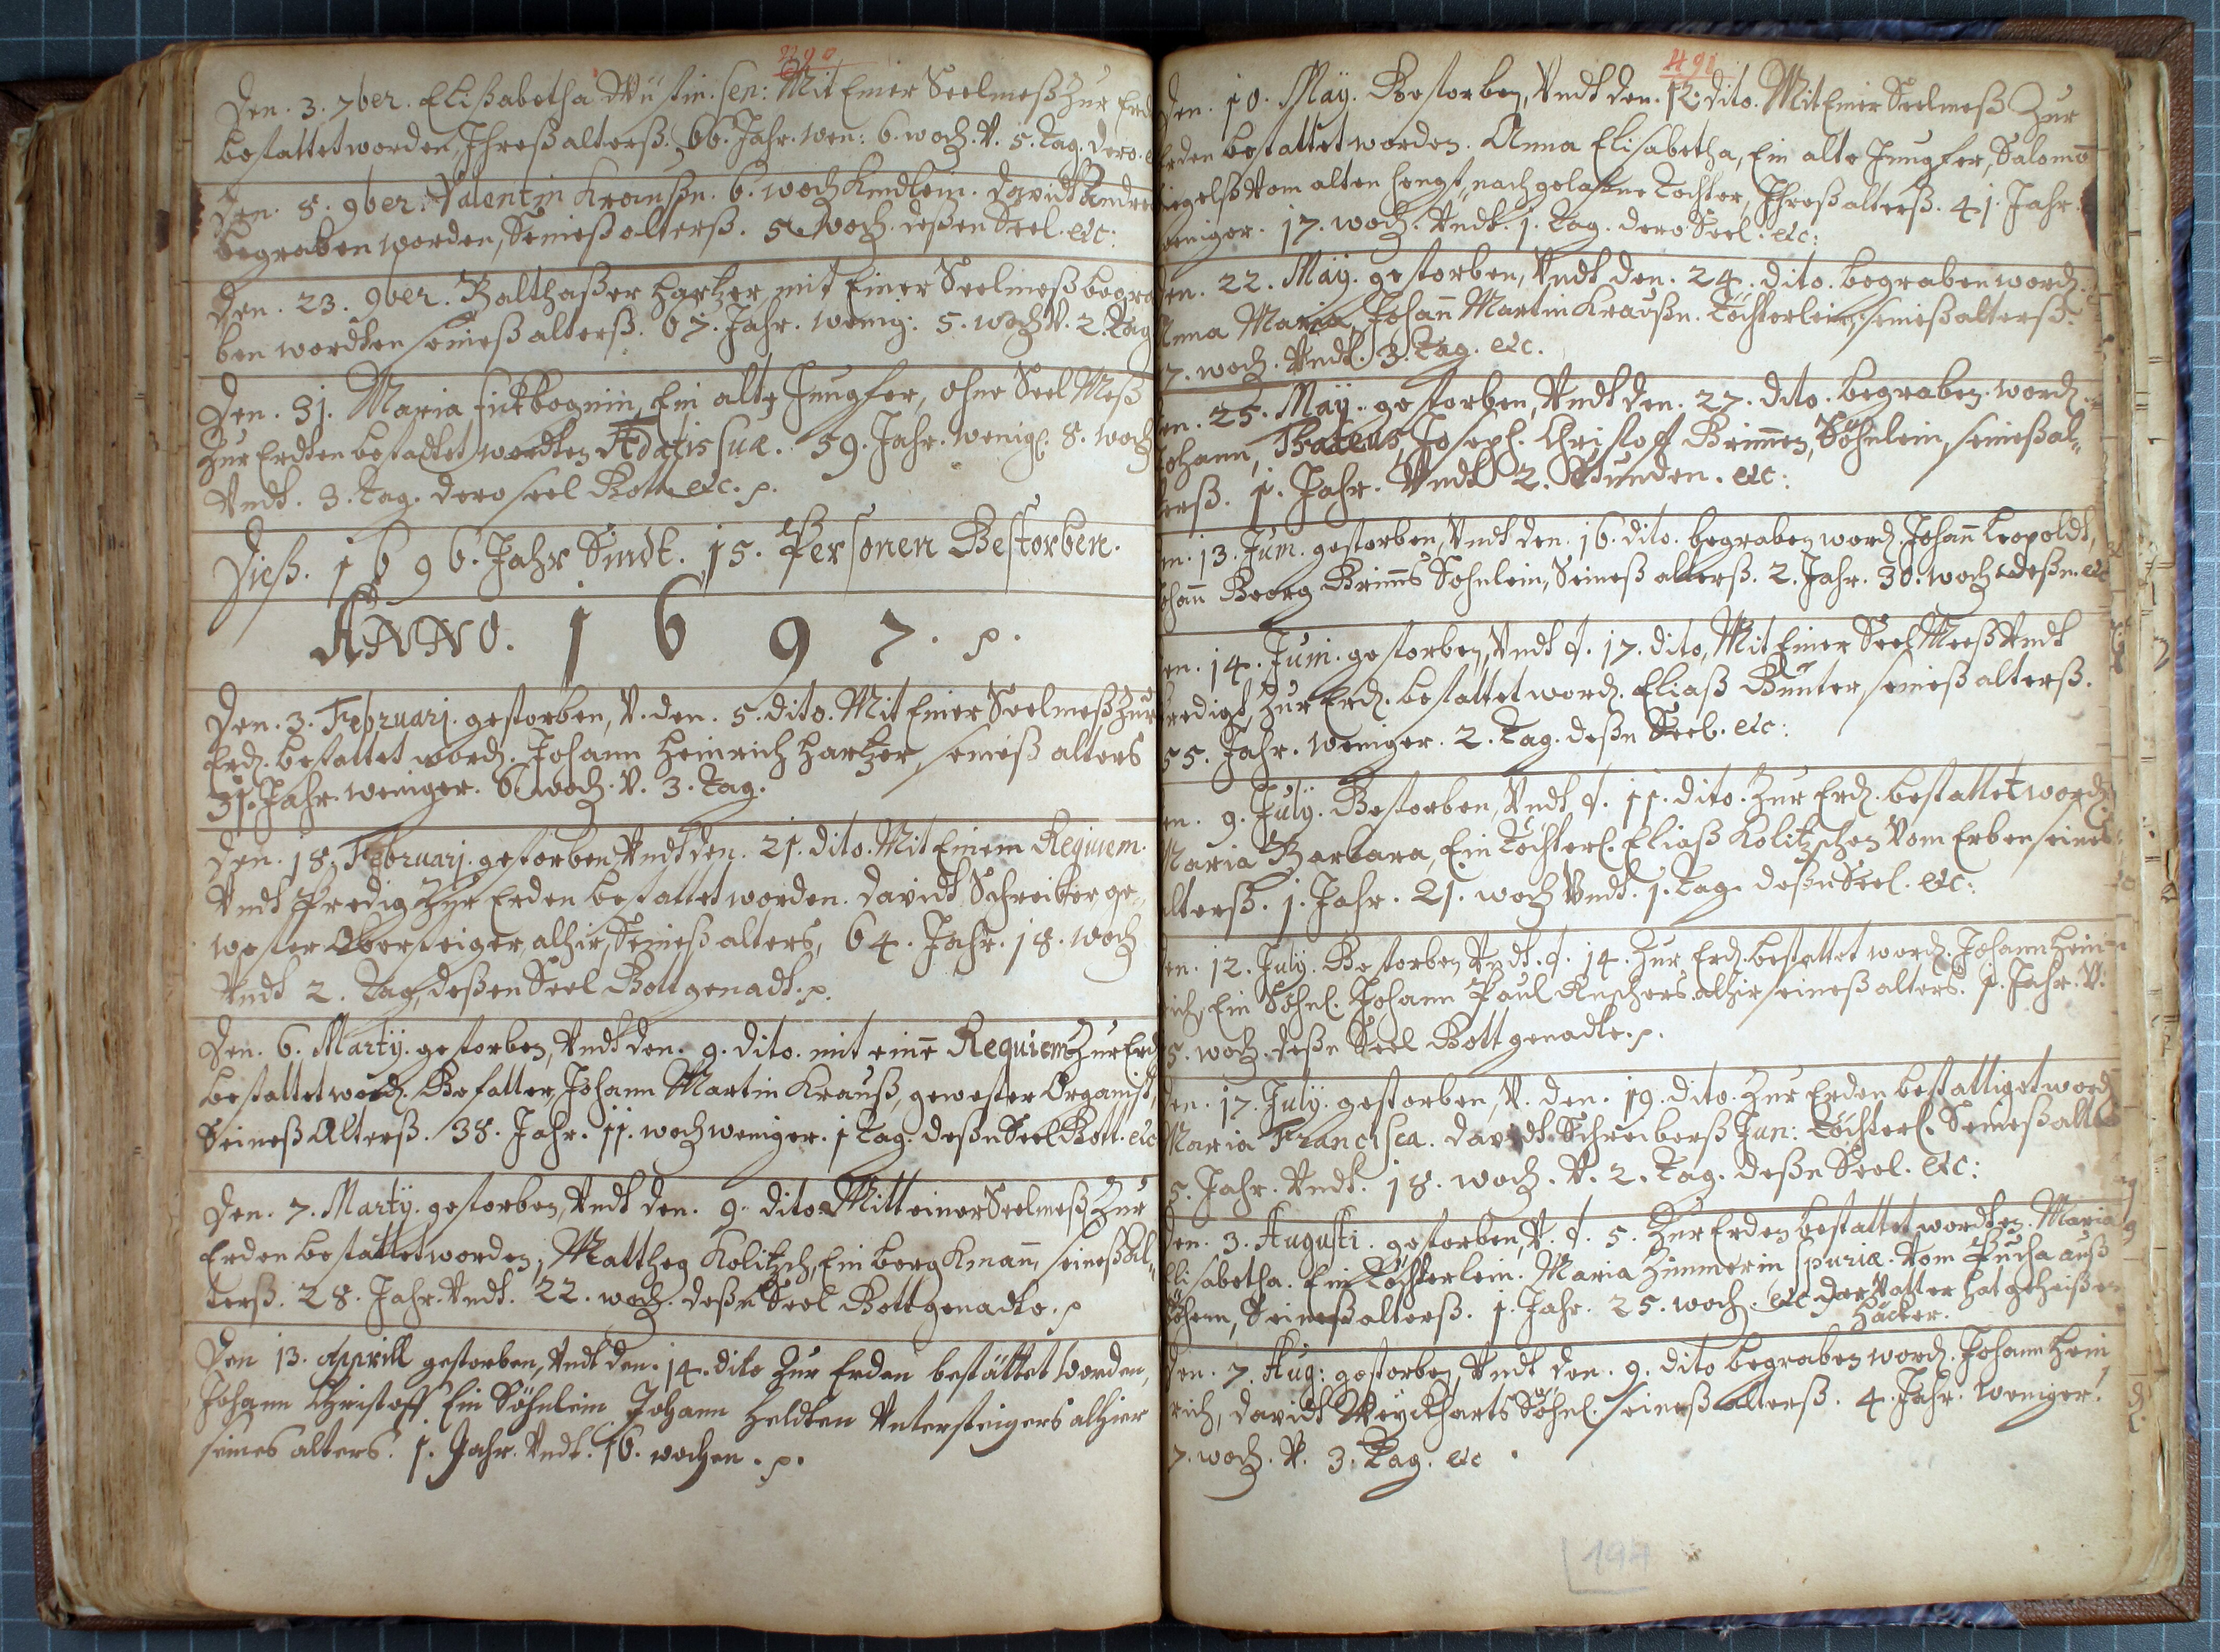 290
Den. 3. 7ber. Elißabetha Wüstin. sen: Mit Einer Seelmeß Zur Erd
bestattet worden, Ihreß alterß. 66. Jahr. wen: 6. woch. V. 5. Tag. dero.
Den. 8. 9ber. Valentin Kraußn. 6. woch Kindlein. Davidt Andre
begraben worden, Seineß alterß. 5 Woch. deßen Seel. etc:
Den. 23. 9ber. Balthaßer Hartzer, mit Einer Seelmeß begra
ben wordten seineß alterß. 67. Jahr. wenig: 5. woch V. 2. Tag
Den. 31. Maria Fickbognin, Ein alte Jungfer, ohne Seel Meß
Zur Erdten bestadtet wordten Ædatis suæ. 59. Jahr. wenig: 8. woch
Vndt. 3. Tag. dero seel Gott etc. p.
Dieß. 1696. Jahr Sindt. 15. Personen Gestorben.
ANNO. 1697. p.
Den. 3. Februarj. gestorben, V. den. 5. dito. Mit Einer Seelmeß Zur
Erd. bestattet word. Johann Heinrich Hartzer, seineß alters
31. Jahr. weniger. 6 woch. V. 3. Tag.
Den. 18. Februarj. gestorben, Vndt den. 21. dito. Mit Einem Requiem.
Vndt Predig Zur Erden bestattet worden. Davidt Schreiber ge„
wester Obersteiger, alhir, Seineß alters, 64. Jahr. 18. woch
Vndt 2. Tag, deßen Seel Gott genadt. p.
Den. 6. Martij. gestorben, Vndt den. 9. dito. mit einē Requiem Zur Erd
bestattet word. Gefatter, Johann Martin Krauß, gewester Organist,
Seineß Alterß. 38. Jahr. 11. woch weniger. 1 Tag. deßn Seel Gott. etc
Den. 7. Martij. gestorben, Vndt den. 9. dito Mitt einer Seelmeß, Zur
Erden bestattet worden, Mattheg Kolitzsch, Ein Bergkmann, seineß Al„
terß. 28. Jahr. Vndt. 22. woch. deßn Seel Gott genadte. p
Den 13. Apprill gestorben, Vndt den. 14. dito Zur Erden bestättet worden,
Johann Christoff Ein Söhnlein Johann Heldten Vntersteigers alhier
seines alters. 1. Jahr. Vndt. 16. wochen. p.
491
den. 10. Maÿ. Gestorben, Vndt den. 12. dito. Mit Einer Seelmeß Zur
Erden bestattet worden. Anna Elisabetha, Ein alte Jungfer, Salomō
iegelß Vom alten Hengst, nachgelaßne Tochter, Ihreß alterß. 41. Jahr.
weniger. 17. woch. Vndt. 1. Tag. dero Seel. etc:
den. 22. Maÿ. gestorben, Vndt den. 24. dito. begraben word.
Anna Maria, Johañ Martin Kraußn. Töchterlein, seineß alterß.
7. woch. Vndt. 3. Tag. etc.
den. 25. Maÿ. gestorben, Vndt den. 27. dito. begraben word.
Johann, Thateus, Joseph. Christoff Grimmen, Söhnlein, seineß al„
terß. 1. Jahr. Vndt 2. Stunden. etc:
den. 13. Juni. gestorben, Vndt den. 16. dito. begraben word. Johañ Leopoldt,
Johañ Georg Grimmß Sohnlein, Seineß alterß. 2. Jahr. 30. woch deßn. etc
den. 14. Juni. gestorben, Vndt d. 17. dito, Mit Einer Seel Meeß Vndt
Predigt, Zur Erd. bestattet word. Eliaß Günter, seineß alterß.
55. Jahr. weniger. 2. Tag. deßn Seel. etc:
den. 9. Julÿ. Gestorben, Vndt d. 11. dito. Zur Erd. bestattet word.
Maria Barbara, Ein Töchterl. Eliaß Kolitzschen Vom Erben seines
alterß. 1. Jahr. 21. woch Vndt. 1. Tag. deßn Seel. etc:
den. 12. Julÿ. Gestorben, Vndt. d. 14. Zur Erd. bestattet word. Johann Hein
rich, Ein Söhnl. Johann Paul Anschers alhir seineß alters. 1. Jahr. V.
5. woch deßn Seel Gott genadte. p.
den. 17. Julÿ. gestorben, V. den. 19. dito. Zur Erden bestattiget word
Maria Francisca. Davidt Schreiberß Jun: Töchterl. Seineß alter
5. Jahr. Vndt. 18. woch. V. 2. Tag. deßn Seel. etc:
den. 3. Augusti. gestorben, V. d. 5. Zur Erden bestattet wordten. Maria
Elisabetha. Ein Töchterlein. Maria Zimmerin spuriæ. Vom Pucha auß
Böhem, Seineß alterß. 1. Jahr. 25. woch. etc der Vatter hat geheißen
Häcker.
den. 7. Aug: gestorben, Vndt den. 9. dito begraben word. Johann Hein
rich, Davidt Weÿckharts Söhnl. seineß alterß. 4. Jahr. weniger.
7. woch. V. 3. Tag. etc
194